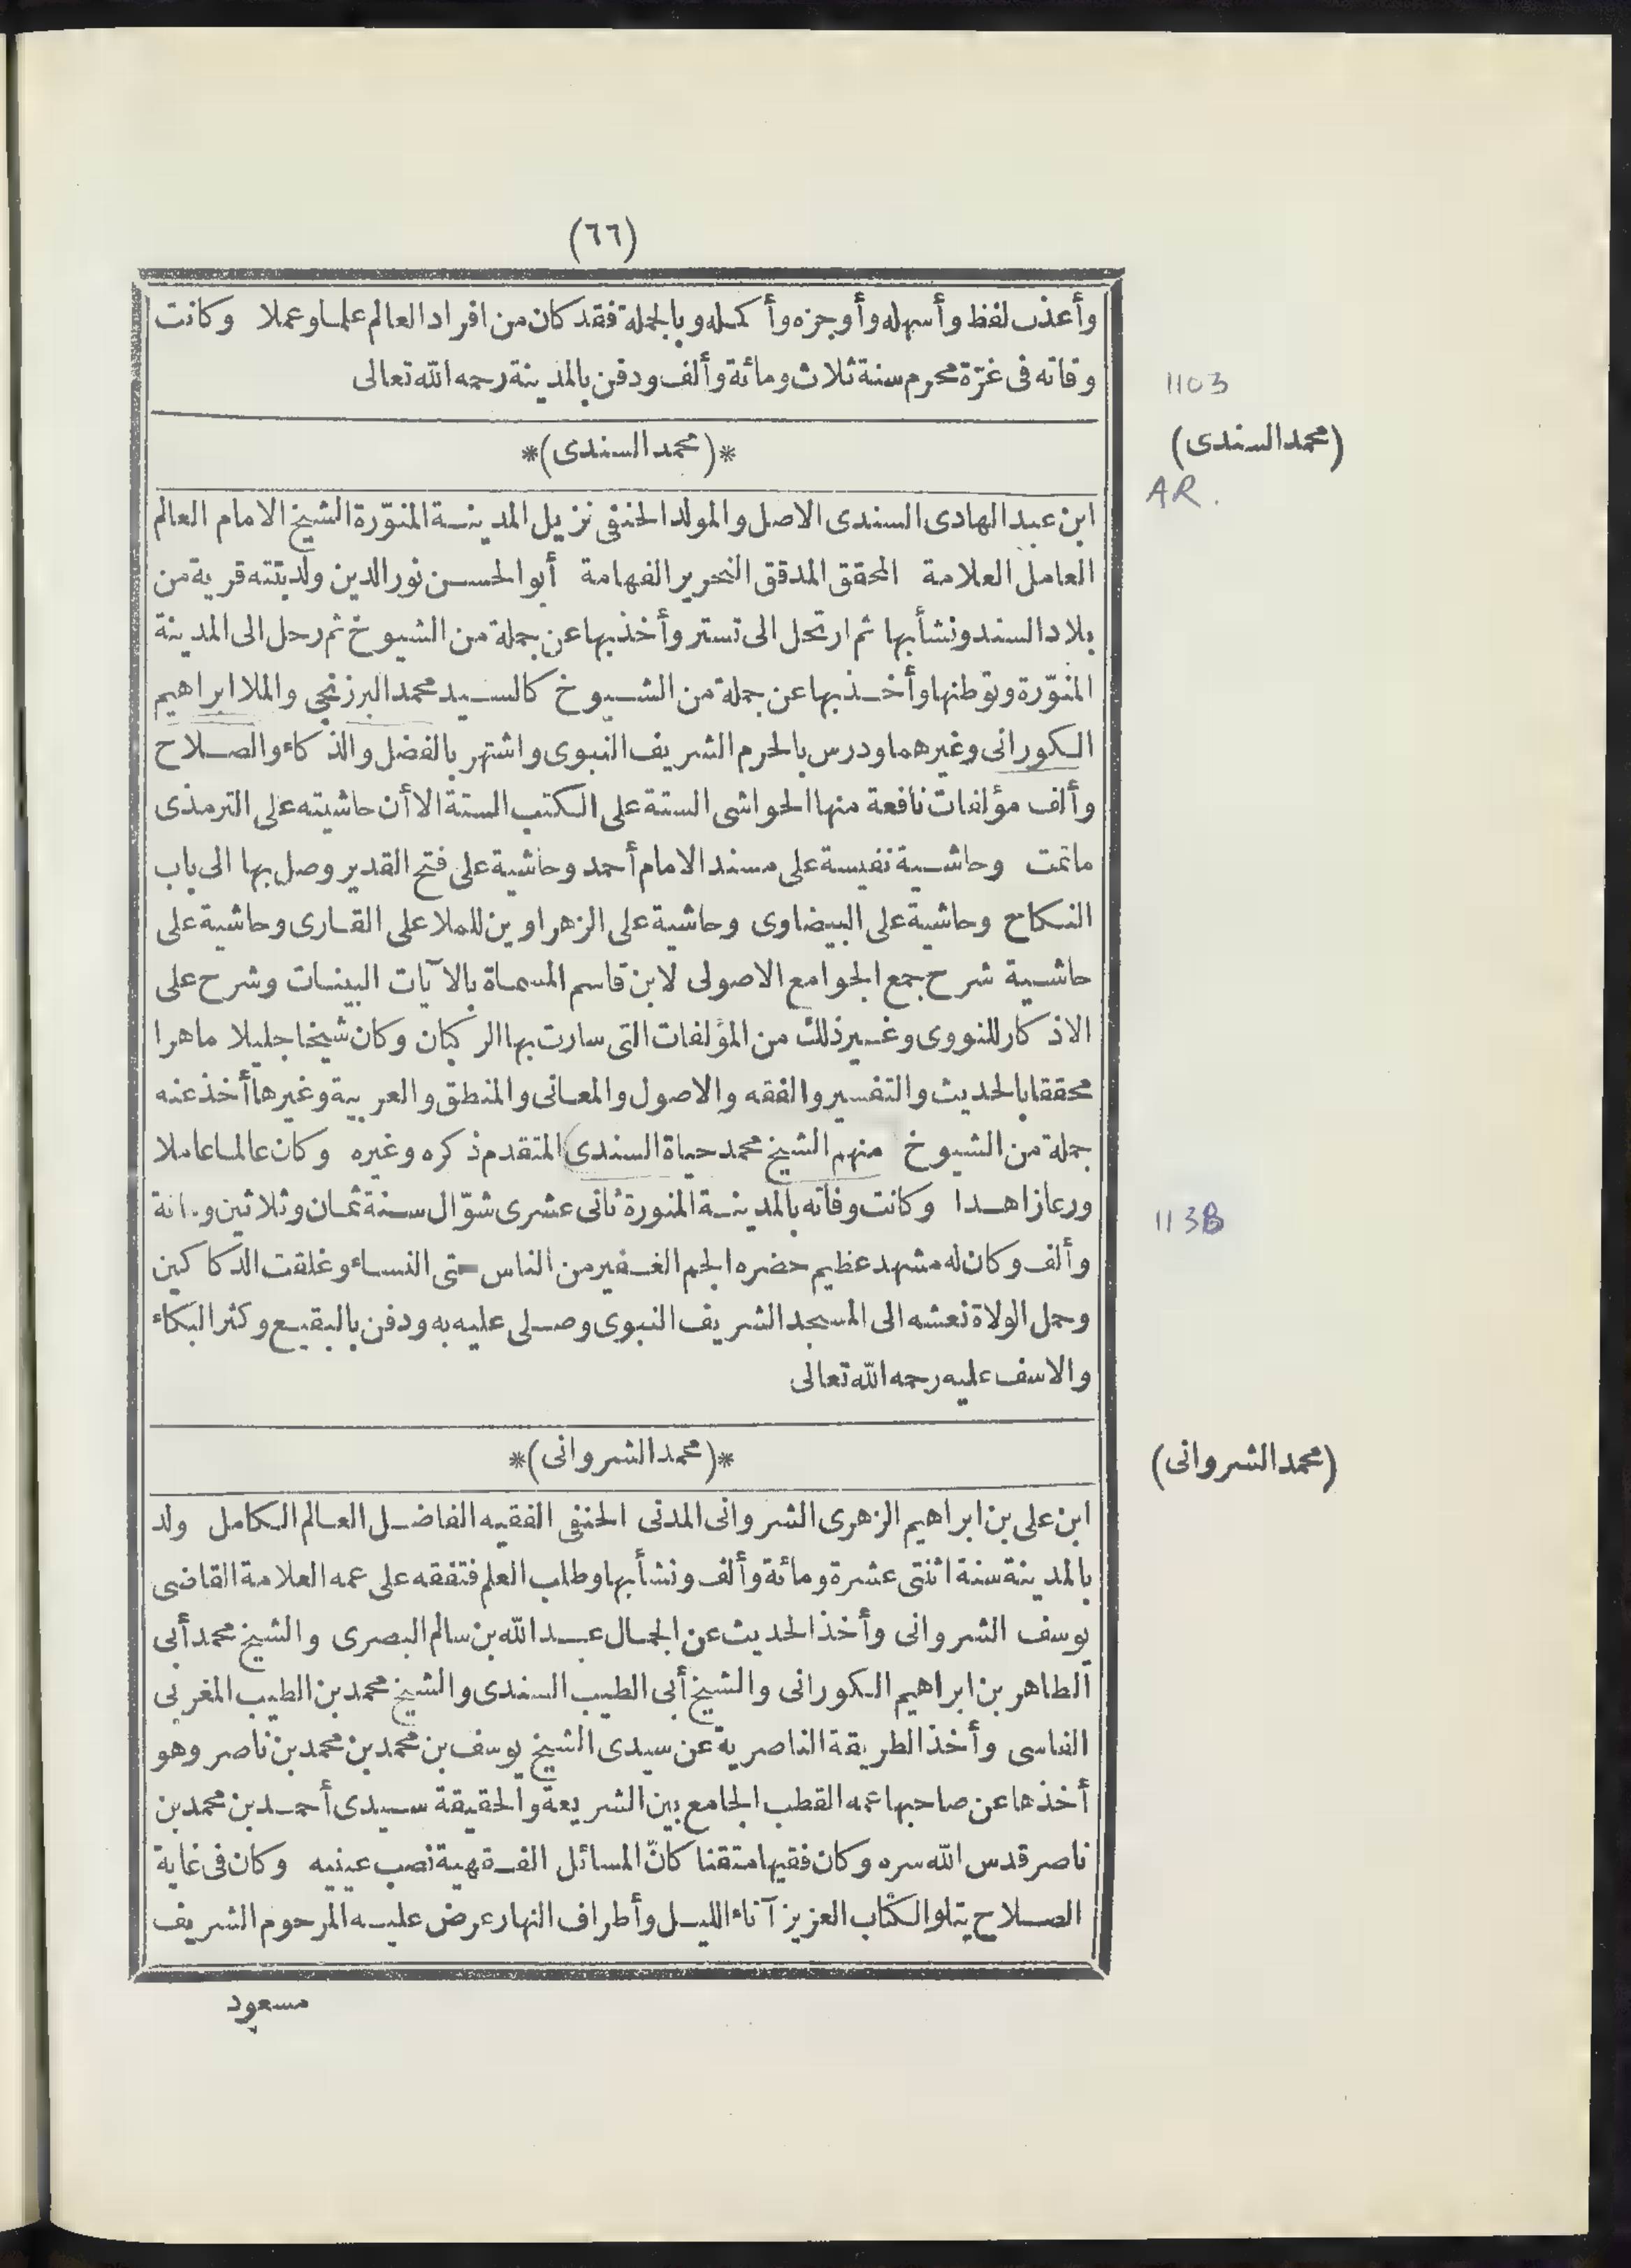 (٦٦)
وأعذب لفظ وأسهله وأوجزه وأكمله وبالجملة فقد كان من افراد العالم علما وعملا وكانت
وفاته فى غرّة محرم سنة ثلاث ومائة وألف ودفن بالمدينة رحمه الله تعالى
1103
(محمد السندى)
*(محمد السندى)*
AR.
ابن عبد الهادى السندى الاصل والمولد الحنفى نزيل المدينة المنوّرة الشيخ الامام العالم
العامل العلامة المحقق المدقق النحرير الفهامة أبو الحسن نور الدين ولد بتته قرية من
بلاد السند ونشأ بها ثم ارتحل الى تستر وأخذ بها عن جملة من الشيوخ ثم رحل الى المدينة
المنوّرة وتوطنها وأخذ بها عن جملة من الشيوخ كالسيد محمد البرزنجى والملا ابراهيم
الكورانى وغيرهما ودرس بالحرم الشريف النبوى واشتهر بالفضل والذكاء والصلاح
وألف مؤلفات نافعة منها الحواشى الستة على الكتب الستة الا أن حاشيته على الترمذى
ماتمت وحاشية نفيسة على مسند الامام أحمد وحاشية على فتح القدير وصل بها الى باب
النكاح وحاشية على البيضاوى وحاشية على الزهراوين للملا على القارى وحاشية على
حاشية شرح جمع الجوامع الاصولى لابن قاسم المسماة بالآيات البينات وشرح على
الاذكار للنووى وغير ذلك من المؤلفات التى سارت بها الركبان وكان شيخا جليلا ماهرا
محققا بالحديث والتفسير والفقه والاصول والمعانى والمنطق والعربية وغيرها أخذ عنه
جملة من الشيوخ منهم الشيخ محمد حياة السندى المتقدم ذكره وغيره وكان عالما عاملا
ورعا زاهدا وكانت وفاته بالمدينة المنورة ثانى عشرى شوّال سنة ثمان وثلاثين ومائة
1138
وألف وكان له مشهد عظيم حضره الجم الغفير من الناس حتى النساء وغلقت الدكاكين
وحمل الولاة نعشه الى المسجد الشريف النبوى وصلى عليه به ودفن بالبقيع وكثر البكاء
والاسف عليه رحمه الله تعالى
*(محمد الشروانى)*
(محمد الشروانى)
ابن على بن ابراهيم الزهرى الشروانى المدنى الحنفى الفقيه الفاضل العالم الكامل ولد
بالمدينة سنة اثنتى عشرة ومائة وألف ونشأ بها وطلب العلم فتفقه على عمه العلامة القاضى
يوسف الشروانى وأخذ الحديث عن الجمال عبد الله بن سالم البصرى والشيخ محمد أبى
الطاهر بن ابراهيم الكورانى والشيخ أبى الطيب السندى والشيخ محمد بن الطيب المغربى
الفاسى وأخذ الطريقة الناصرية عن سيدى الشيخ يوسف بن محمد بن محمد بن ناصر وهو
أخذها عن صاحبها عمه القطب الجامع بين الشريعة والحقيقة سيدى أحمد بن محمد بن
ناصر قدس الله سره وكان فقيها متقنا كانّ المسائل الفقهية نصب عينيه وكان فى غاية
الصلاح يتلو الكتاب العزيز آناء الليل وأطراف النهار عرض عليه المرحوم الشريف
مسعود